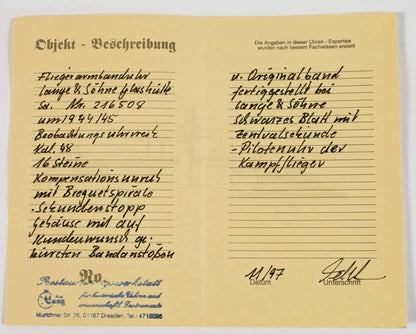 Objekt - Beschreibung
Fliegerarmbanduhr
Lange & Söhne Glashütte
Sa. Nr. 216508
um 1944/45
Beobachtungsuhrwerk
Kal. 48
16 Steine
Kompensationsunruh
mit Breguetspirale
Sekundenstopp
Gehäuse mit auf
Kundenwunsch ge-
bohrten Bandanstößen
No
Restaurierungswerkstatt
für historische Uhren und
wissenschaftl. Instrumente
Lang
Münchner Str. 25, 01187 Dresden, Tel.:
Die Angaben in dieser Uhren - Expertise
wurden nach bestem Fachwissen erstellt
u. Originalband
fertiggestellt bei
Lange & Söhne
Schwarzes Blatt mit
Zentralsekunde
- Pilotenuhr der
Kampfflieger
11/97
Datum
Unterschrift